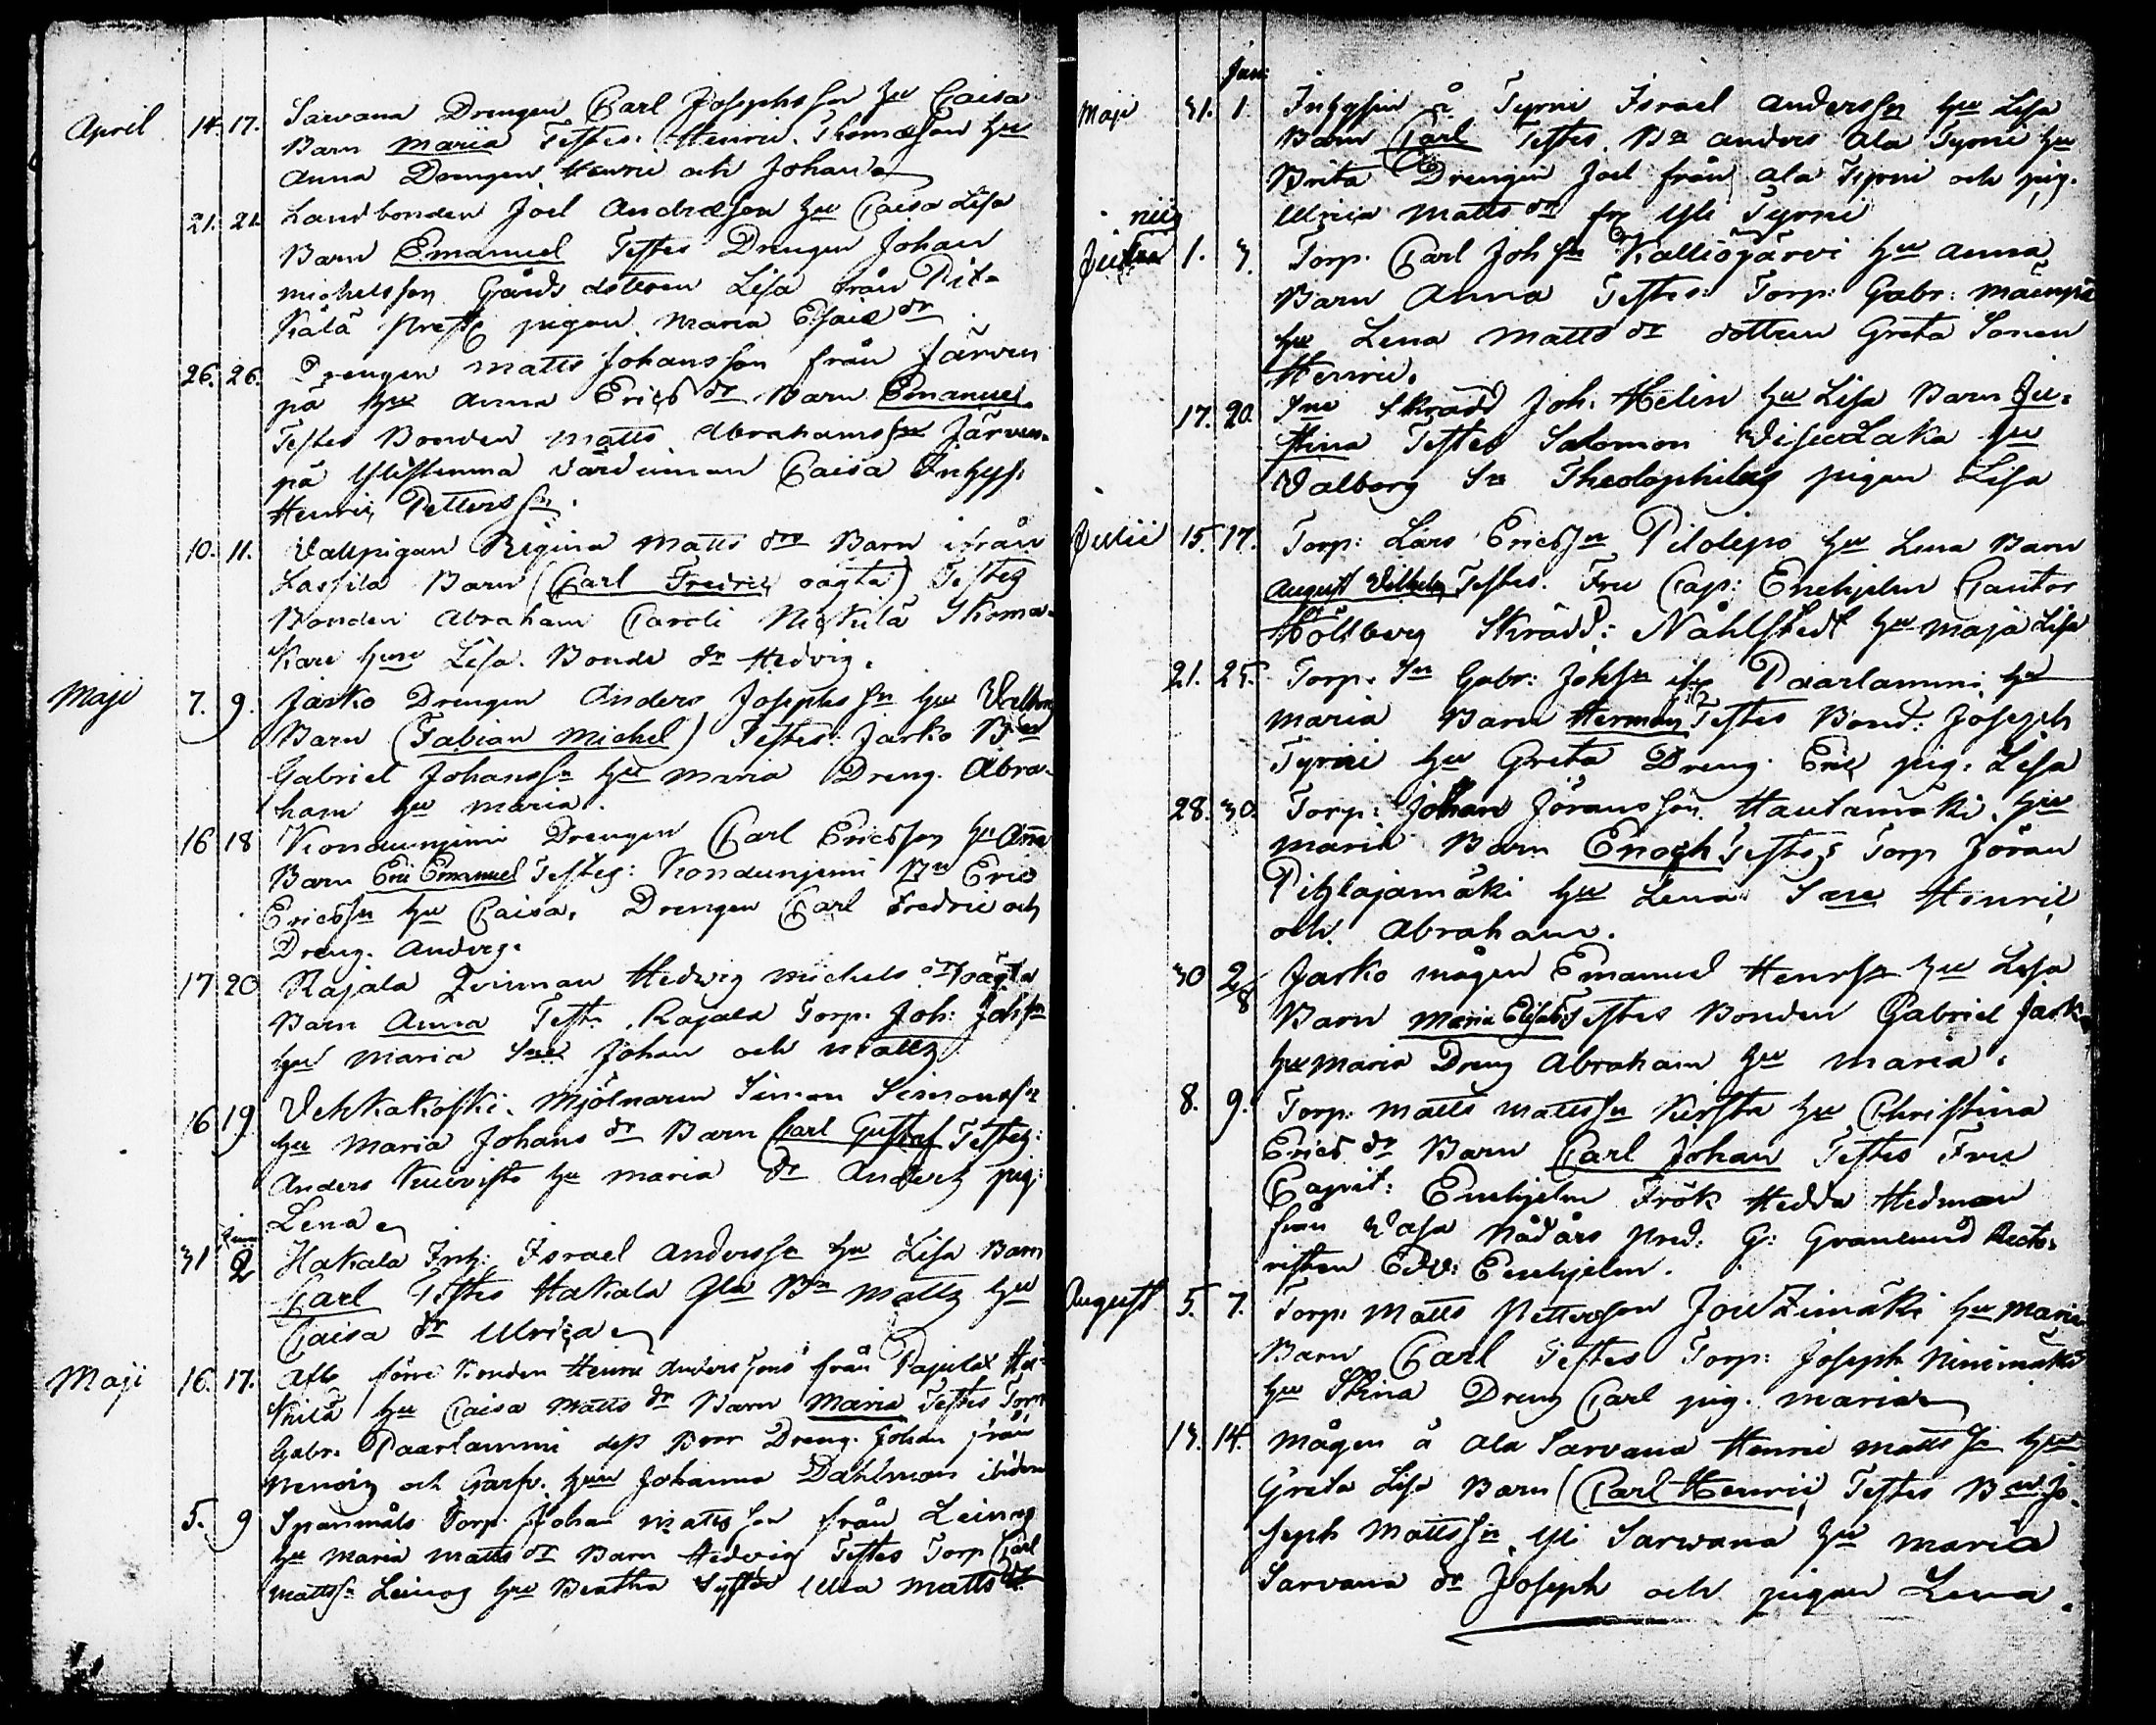 April 14. 17. Sarvana Drengen Carl Josephsson hu Caisa
Barn Maria Testes. Henric Thomæson hu
Anna Drengen Henric och Johan
21. 21. Landbonden Joel Andræson hu Caisa Lisa
Barn Emanuel Testes Drengen Johan
Michelsson Gårds dotteren Lisa från Pit=
källä Prest pigan Maria Esaiæ dr
26. 26. Drengen Matts Johansson från Järven
pä hu Anna Erics dr Barn Emanuel
Testes Bonden Matts Abrahamsson Järven=
pä Ylistenma värdinnan Caisa Inhys.
Henric Petterssn.
10. 11. Vallpigan Regina Matts drs Barn ifrån
Lassila Barn (Carl Fredric oägta) Testes
Bonden Abraham Caroli Niskila Skoma=
kare hun Lisa. Bonde dr Hedvig.
Maji 7. 9. Jasko Drengen Anders Josephssn hu Valborg
Barn (Fabian Michel) Testes: Jarko Bn
Gabriel Johanssn hu Maria Dreng. Abra=
ham hu Maria.
16 18 Kondunjemi Drengen Carl Ericsson hu Anna
Barn Eric Emanuel Testes: Kondunjemi Bn Eric
Ericssn hu Caisa. Drengen Carl Fredric och
Dreng. Anders.
17 20 Rajala Qvinnan Hedwig Michels dr oägta
Barn Anna Test. Rajala Torp. Joh: Johsn
hu Maria Sne Johan och Matts
16 19 Vehkakoski. Mjölnaren Simon Simonssn
hu Maria Johans dr Barn Carl Gustaf Testes:
Anders Kuivisto hu Maria dr Anders pig:
Lena
31 Juni 2 Hakala Inh: Israel Anderssn hu Lisa Barn
Carl Testes Hakala Gla Bn Matts hu
Caisa dr Ulrica
Maji 16. 17. Afl. förre Bonden Henric Anderssons från Pajula
hu Caisa Matts dr Barn Maria Testes Torp
Gabr. Paarlammi dess Bror Dreng. Johan från
och Garfv. hun Johanna Dahlman ibidem
5. 9 Spanmåls Torp. Johan Mattsson från Leinos
hu Maria Matts dr Barn Hedvig Testes Torp Carl
Mattssn Leinos hu Beatha Syster Ulla Matts dr
Jun:
Maji 31. 1. Inhysin å Tyrni Israel Anderssn hu Lisa
Barn Carl Testes. Bn Anders Ala Tyrni hu
Brita Drengen Joel från Ala Tyrni och pig.
Ulrica Matts dr fr Yli Tyrni
Junii 1. 3. Torp. Carl Joh sn Kalliojärvi hu Anna
Barn Anna Testes: Torp: Gabr: Mäenpä
hu Lena Matts dr dottren Greta Sonen
Henric.
17. 20. Sne Skrädd Joh. Helin hu Lisa Barn Ju=
stina Testes Salomon hu
Valborg Sn Theolophilus pigan Lisa
Julii 15. 17. Torp: Lars Ericssn Pitolepo hu Lena Barn
August Vilhelm Testes. Fru Cap: Enehjelm Cantor
Höllberg Skrädd: Nåhlstedt hu Maja Lisa
21. 25. Torp. Sn Gabr: Johsn ifr Paarlammi hu
Maria Barn Herman Testes Bond: Joseph
Tyrni hu Greta Dreng. Eric pig. Lisa
28. 30. Torp. Johan Jöransson Hautamäki hu
Maria Barn Enoch Testes Torp Jöran
Pihlajamäki hu Lena Sne Henric
och Abraham.
30 2/8 Jasko mågen Emanuel Henrssn hu Lisa
Barn Maria Elisab Testes Bonden Gabriel Jask
hu Maria Dreng Abraham hu Maria.
8. 9. Torp. Matts Mattssn Kirsta hu Christina
Erics dr Barn Carl Johan Testes Fru
Capit: Enehjelm Frök Hedda Hedman
från Vasa Nådårs Pred. G: Granlund Recto=
ristem Edv: Enehjelm.
August 5. 7. Torp. Matts Pettersson Jouzimäki hu Maria
Barn Carl Testes Torp: Joseph Ninimäki
hu Stina Dreng Carl pig. Maria
13. 14. Mågen å Ala Sarvana Henric Matts sn hu
Greta Lisa Barn (Carl Henric) Testes Bn Jo=
seph Mattssn Yli Sarwana hu Maria
Sarvana dr Joseph och pigan Lena.